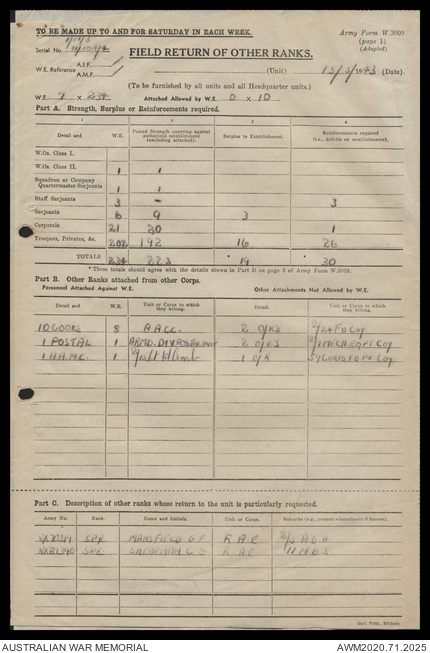 TO BE MADE UP TO AND FOR SATURDAY IN EACH WEEK.
Army Form W.3009
(page 1)
(Adapted)
Serial No.
FIELD RETURN OF OTHER RANKS.
W.E. Reference A.I.F.
A.M.F.
(Unit) 13/3/1943 (Date).
(To be furnished by all units and all Headquarter units.)
W.E. 7 x 234 Attached Allowed by W.E. 0 x 10
Part A. Strength, Surplus or Reinforcements required.
1 2 3 4
Detail and W.E. Posted Strength counting against authorized establishment (excluding attached). Surplus to Establishment. Reinforcements required (i.e., deficits on establishments).
W.Os. Class I.
W.Os. Class II. 1 1
Squadron or Company Quartermaster-Serjeants 1 1
Staff Serjeants 3 - 3
Serjeants 6 9 3
Corporals 21 20 1
Troopers, Privates, &c. 202 192 16 26
TOTALS 234 223 * 19 30
* These totals should agree with the details shown in Part D on page 2 of Army Form W.3009.
Part B. Other Ranks attached from other Corps.
Personnel Attached Against W.E. Other Attachments Not Allowed by W.E.
Detail and W.E. Unit or Corps to which they belong. Detail. Unit or Corps to which they belong.
10 COOKS 8 A.A.C.C. 2 O/RS 2/24 FD Coy
1 POSTAL 1 ARMD. DIV POSTAL UNIT 2 O/RS
1 A.A.M.C. 1 1 O/R
Part C. Description of other ranks whose return to the unit is particularly requested.
Army No. Rank. Name and Initials. Unit or Corps. Remarks (e.g., present whereabouts if known).
SPR MANSFIELD G.F. R.A.E. 2/5 A.G.H
SPR R.A.E. 11 M.D.S
Govt. Print., Brisbane.
AUSTRALIAN WAR MEMORIAL
AWM2020.71.2025